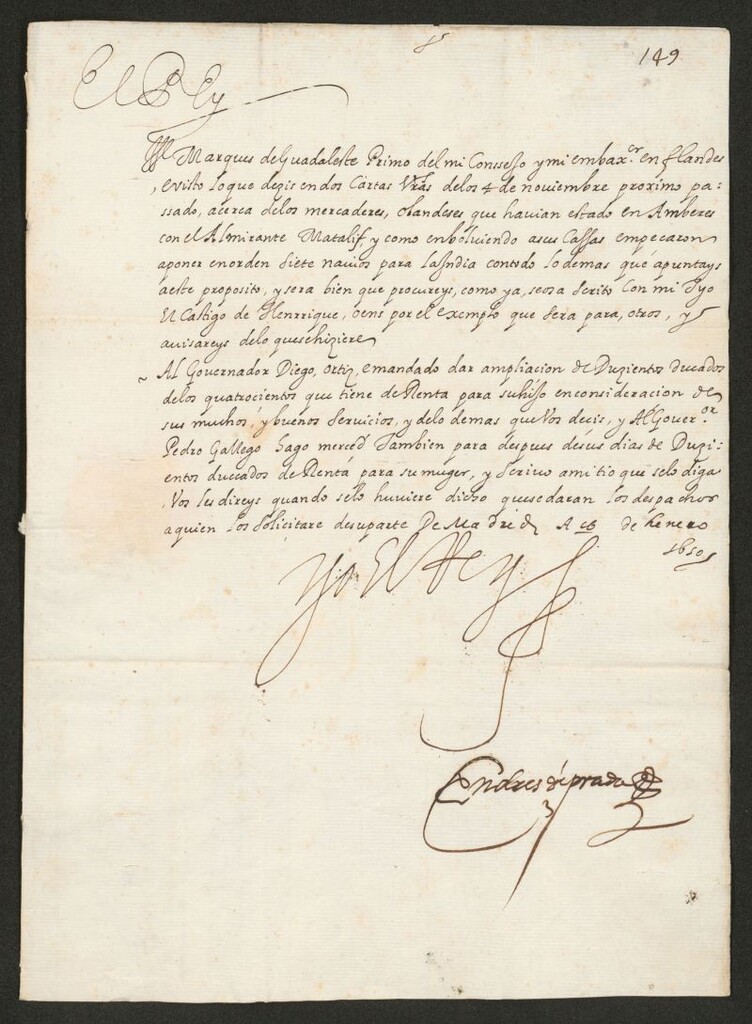 149
El Rey
Marques de Guadaleste Primo del mi Conssejo y mi embax.or en flandes
, e visto lo que dezis en dos Cartas Vras delos 4 de noviembre proximo pa=
ssado, acerca delos mercaderes, olandeses que havian estado en Amberes
con el Almirante Matalif, y como en bolviendo a sus Cassas empeçaron
a poner en orden siete navios para la India con todo lo demas que apuntays
a este proposito, y sera bien que procureys, como ya, se os a scrito Con mi Tyo
El Castigo de Henrrique, Oens por el exemplo que sera para, otros, y
avisareys delo que se hiziere
Al Governador Diego, Ortiz, e mandado dar ampliacion de Duzientos ducados
delos quatrocientos que tiene de Renta para su hijo en consideracion de
sus muchos, y buenos servicios, y delo demas que Vos decis, y Al Gover.or
Pedro Gallego hago merced Tambien para despues de sus dias de Duzi=
entos ducados de Renta para su muger, y scrivo a mi tio que se lo diga
Vos les direys quando se lo huviere dicho que se daran los despachos
a quien los solicitare de su parte De Madrid A de henero
1610
Yo El Rey
Andres de prada